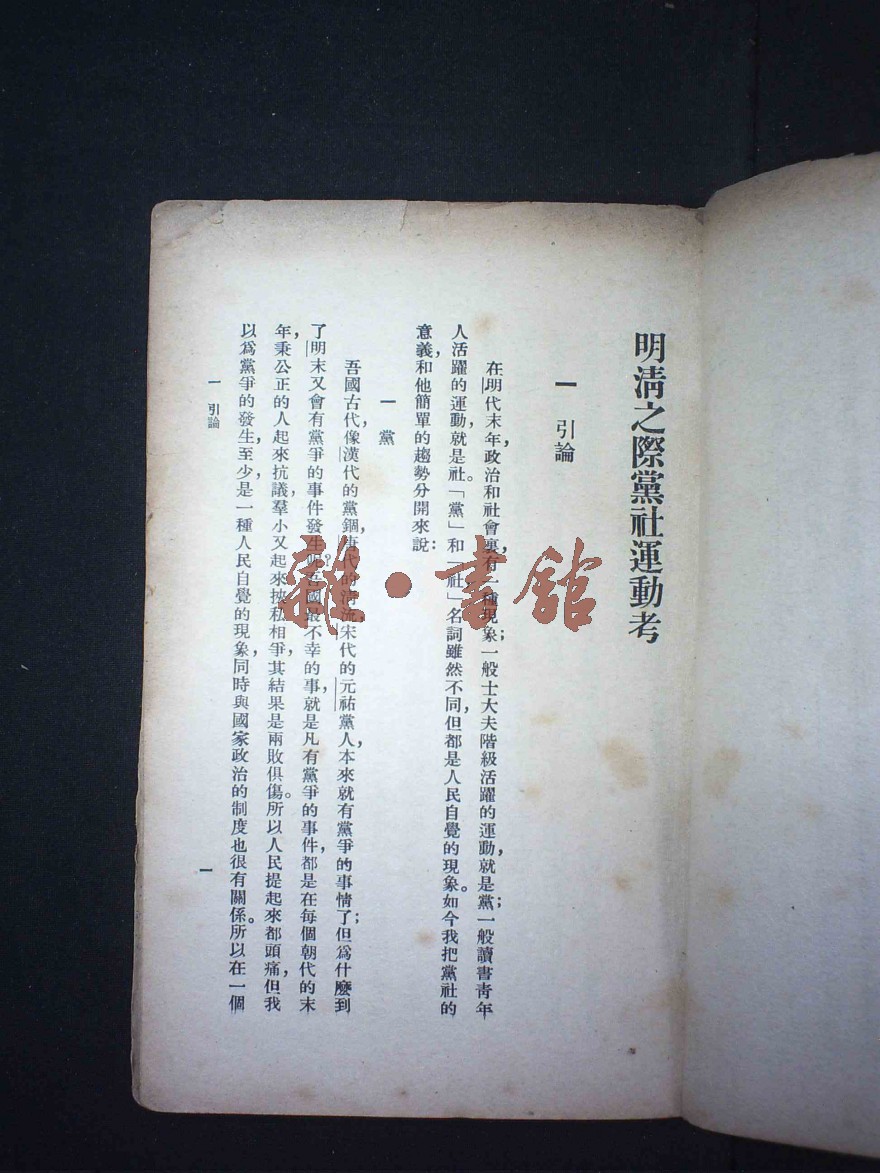 明清之際黨社運動考
一 引論
在明代末年，政治和社會裏有一種現象；一般士大夫階級活躍的運動，就是黨；一般讀書青年
人活躍的運動，就是社。「黨」和「社」名詞雖然不同，但都是人民自覺的現象。如今我把黨社的
意義，和他簡單的趨勢分開來說：
一 黨
吾國古代，像漢代的黨錮，唐代的清流，宋代的元祐黨人，本來就有黨爭的事情了；但爲什麼到
了明末又會有黨爭的事件發生呢？吾國最不幸的事，就是凡有黨爭的事件，都是在每個朝代的末
年，秉公正的人起來抗議，羣小又起來挾私相爭，其結果是兩敗俱傷。所以人民提起來都頭痛，但我
以爲黨爭的發生，至少，是一種人民自覺的現象，同時與國家政治的制度也很有關係。所以在一個
一 引論
一
雜·書館